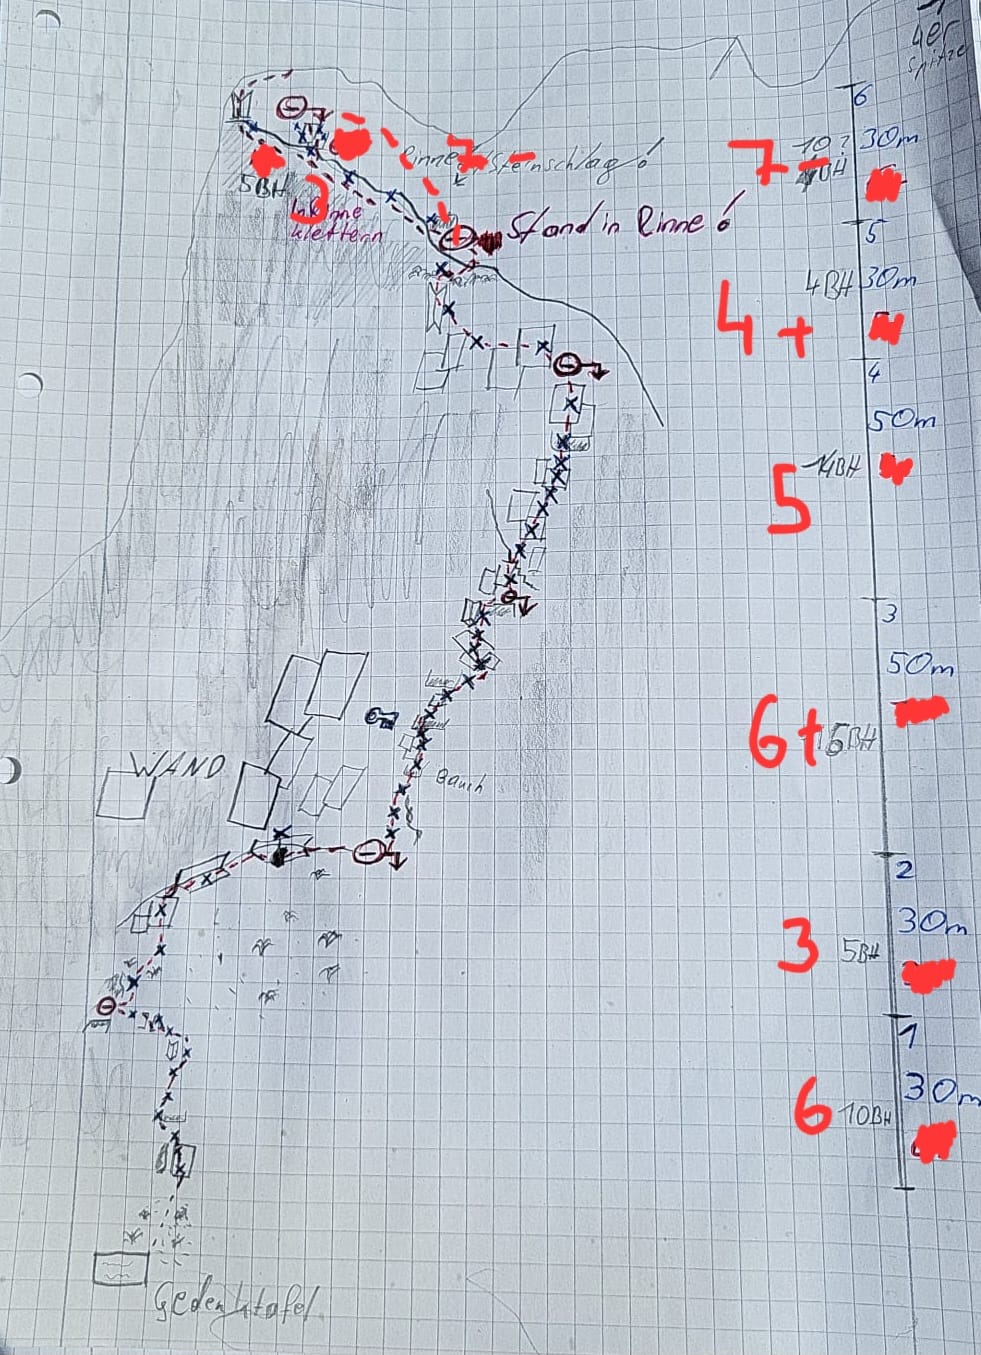 4er
Spitze
6
30m
7-
10?
5BH
7-
Rinne Steinschlag!
3
In Rinne
klettern
Stand in Rinne!
5
4BH
30m
4+
4
50m
14BH
5
3
50m
6+
BH
WAND
Bauch
2
30m
3
5BH
1
30m
6
10BH
Gedenktafel